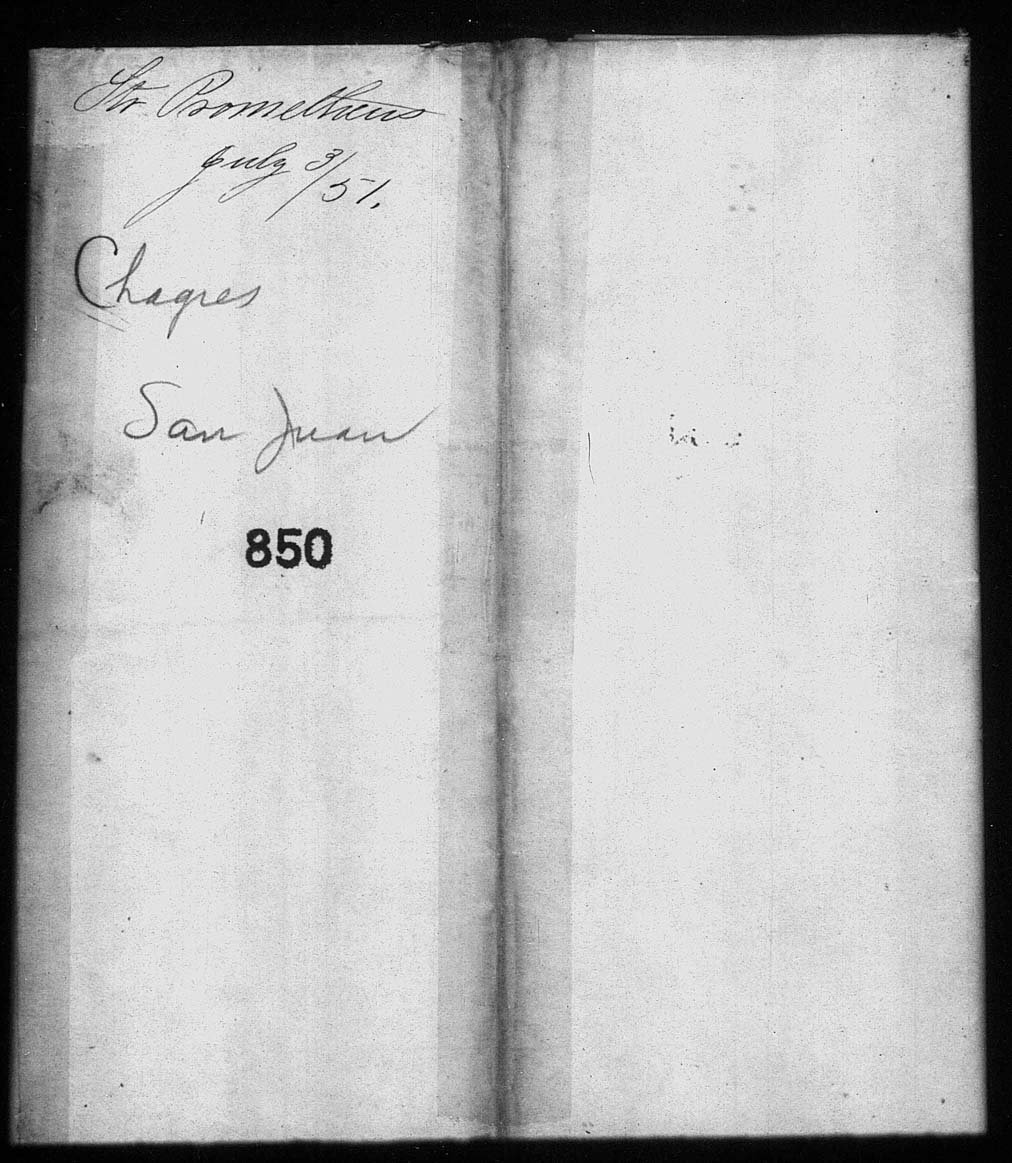 Str Prometheus
July 3/51.
Chagres
San Juan
850